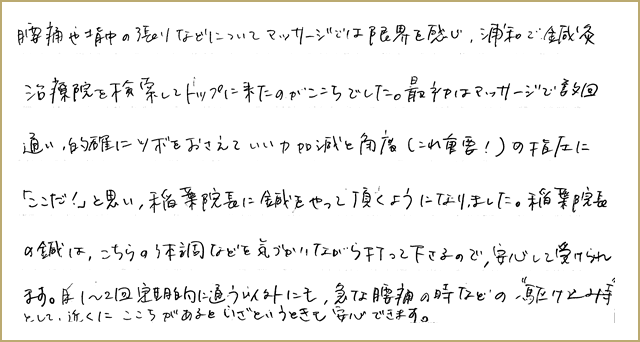 腰痛や背中の張りなどについてマッサージでは限界を感じ、浦和で鍼灸
治療院を検索してトップに来たのがここでした。最初はマッサージで数回
通い、的確にツボをおさえていい力加減と角度(これ重要!)の指圧に
「ここだ!」と思い、稲葉院長に鍼をやって頂くようになりました。稲葉院長
の鍼は、こちらの体調などを気づかいながら打って下さるので、安心して受けられ
ます。月1〜2回定期的に通う以外にも、急な腰痛の時などの"駆け込み寺"
として、近くにここがあるといざというときも安心できます。